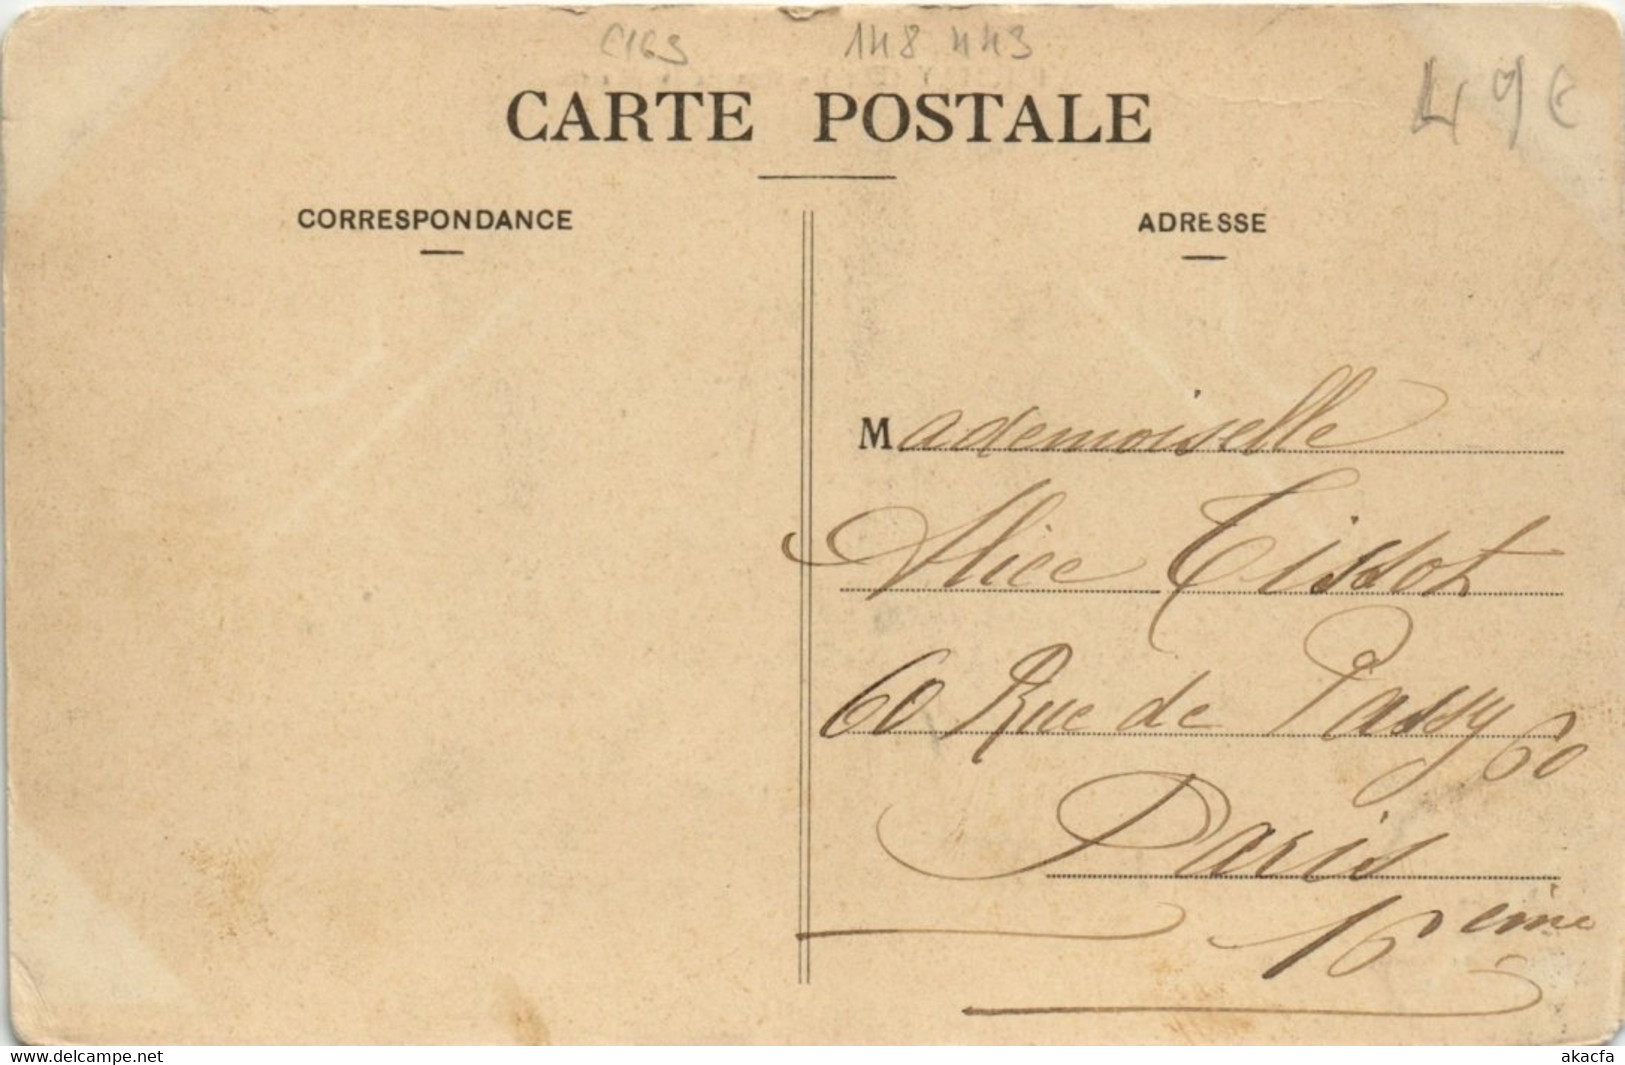 C163 148 443
49€
CARTE POSTALE
CORRESPONDANCE
ADRESSE
Mademoiselle
Alice Tissot
60 Rue de Passy 60
Paris
16eme
www.delcampe.net
akacfa